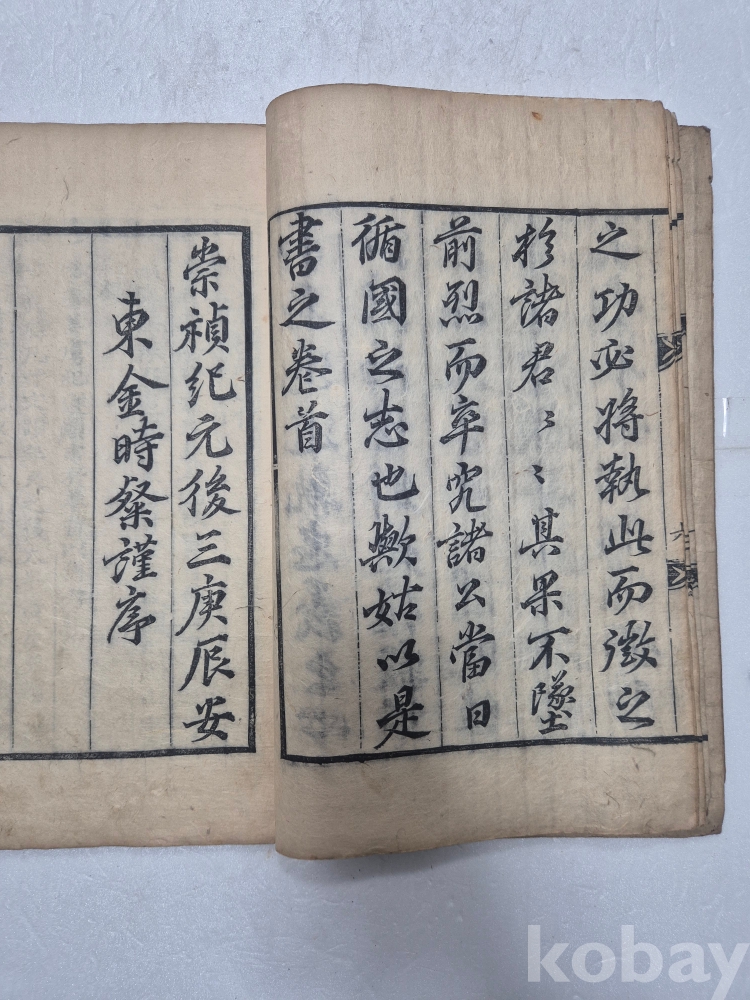 之功必將執此而徵之
於諸君〻〻其果不墜
前烈而卒究諸公當日
循國之志也歟姑以是
書之卷首
崇禎紀元後三庚辰安
東金時粲謹序
六
kobay